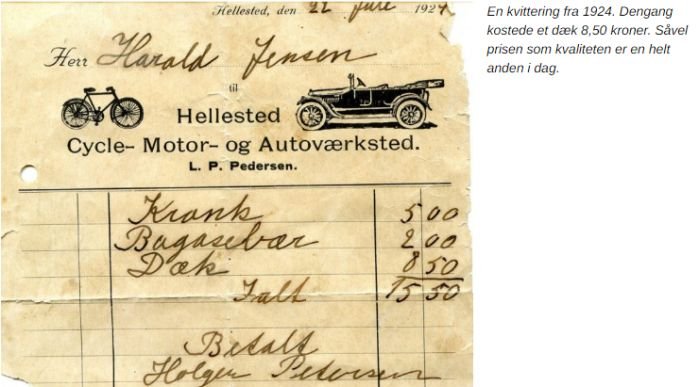 Hellested, den 22 Juli 1924
Herr Harald Jensen
til
Hellested
Cycle- Motor- og Autoværksted.
L. P. Pedersen.
Krank 5 00
Bagasebær 2 00
Dæk 8 50
Ialt 15 50
Betalt
Holger Petersen
En kvittering fra 1924. Dengang
kostede et dæk 8,50 kroner. Såvel
prisen som kvaliteten er en helt
anden i dag.